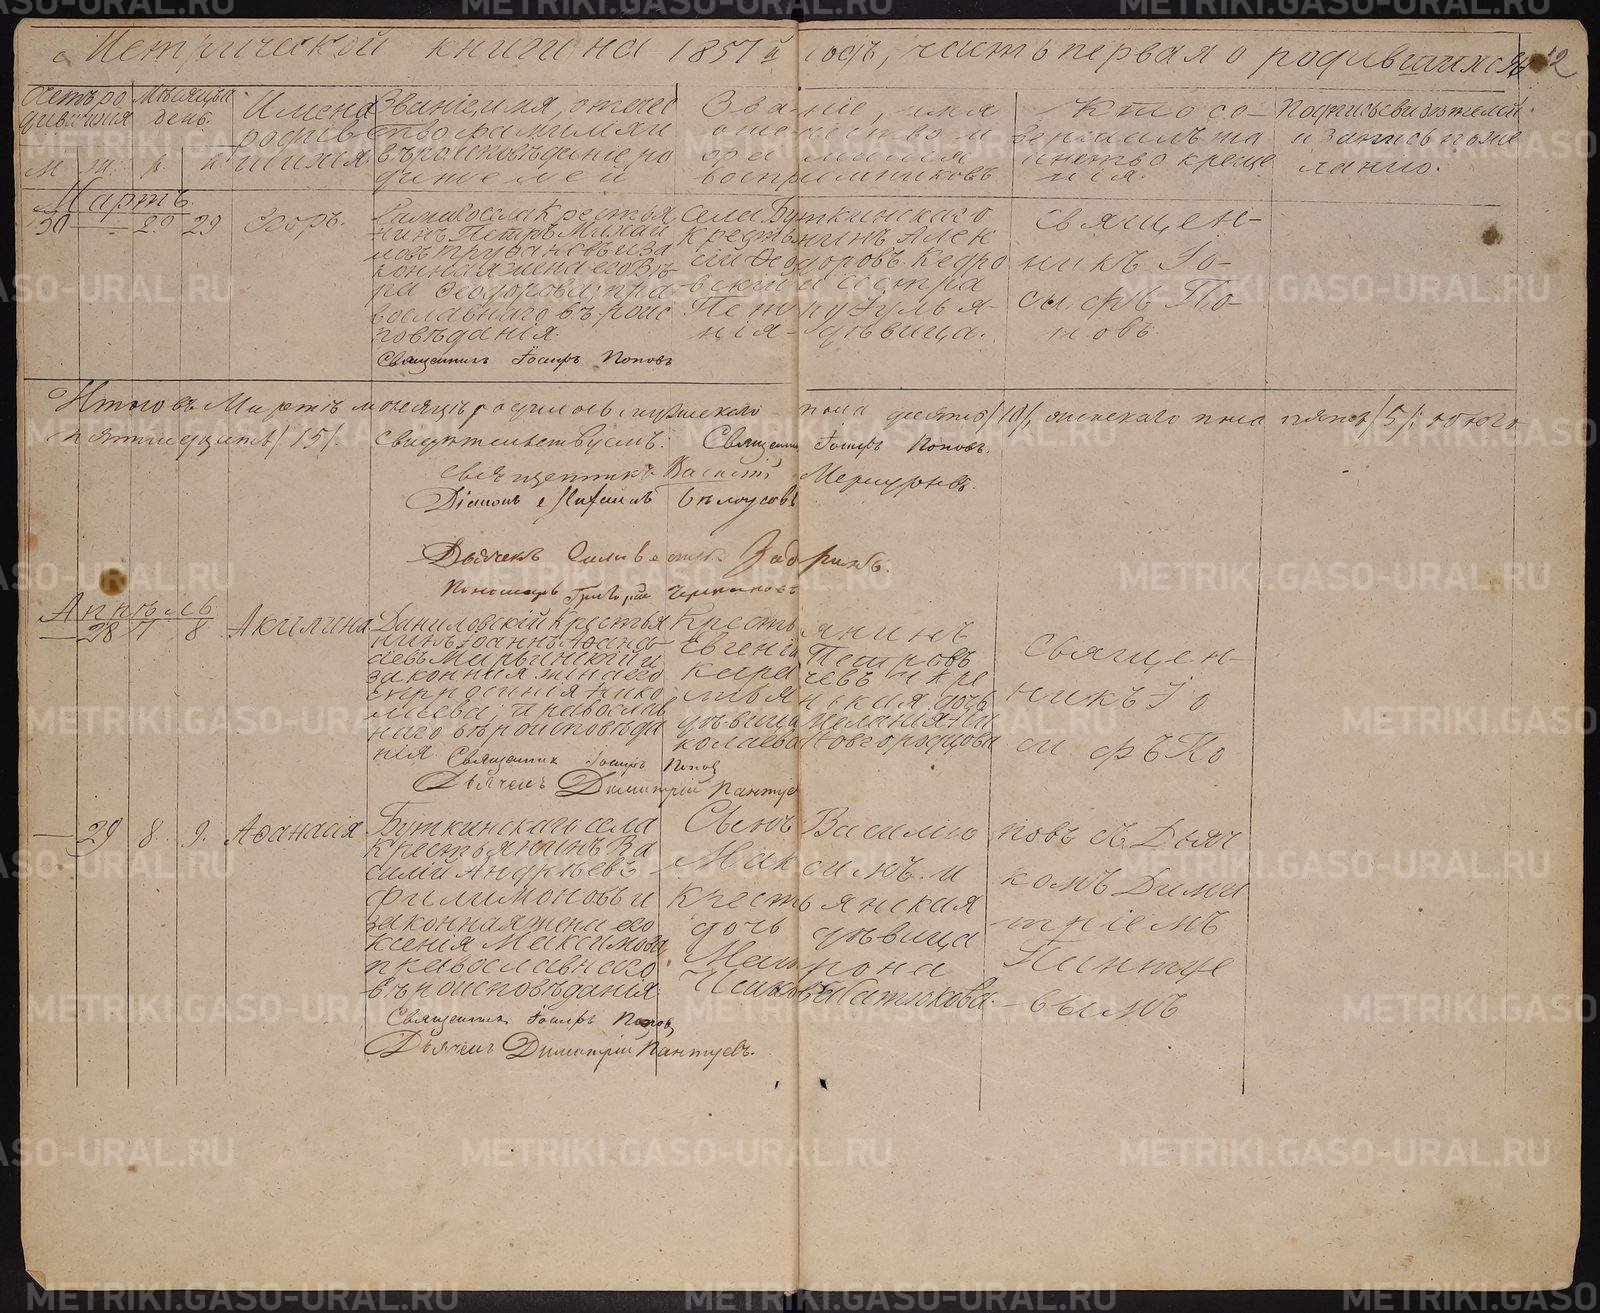 Метрической книги на 1857й годъ, часть первая о родившихся 12
Счетъ родившихся
Мѣсяцъ и день.
Имена родившихся.
Званіе, имя, отчество, фамилія и
вѣроисповѣданіе родителей
Званіе, имя
отечество и
фамилія
воспріемниковъ
Кто со-
вершалъ та
инство креще
нія.
Подпись свидѣтелей
и запись по же
ланію.
м. ж. р. к.
Мартъ.
30 — 29 29 Егоръ.
села Крестья
нинъ Петръ Михай
ловъ Трубановъ и за
конная жена его Вѣ-
ра Ѳеодорова, пра-
вославнаго вѣроис
повѣданія.
Священникъ Іосифъ Поповъ
Села Буткинскаго
крестьянинъ Алек
сій Ѳеодоровъ Кедро
вскій и сестра
Петру Гулья-
нія — дѣвица.
Священ-
никъ Іо-
сифъ По-
повъ.
Итого въ Мартѣ мѣсяцѣ родилось мужескаго пола десять /10/, женскаго пола пять /5/; обоего
пятнадцать /15/. свидѣтельствуемъ: Священникъ Іосифъ Поповъ.
Священникъ Василій Меркурьевъ.
Діаконъ Михаилъ Бѣлоусовъ
Дьячекъ Силивестръ Задоринъ.
Пономарь Григорій
Апрѣль
— 28 7 8 Акилина
Даниловскій Крестья
нинъ Іоаннъ Аѳанась
евъ Марьинскій и
законная жена его
Нико
лаева; православ
наго вѣроисповѣда
нія. Священникъ Іосифъ Попов
Дьячекъ Димитрій Пантуе
Крестьянинъ
Евгеній Петровъ
чевъ и кре
стьянская дочь
дѣвица Меланія Ни
колаева Новгородцова
Священ-
никъ Іо
сифъ По
— 29 8. 9. Аѳанасія
Буткинскаго села
крестьянинъ Ва
силій Андрѣевъ
Филимоновъ и
законная жена его
Ксенія Максимова,
православнаго
вѣроисповѣданія.
Священникъ Іосифъ Поповъ,
Дьячекъ Димитрій Пантуевъ.
Сынъ Василію
Максимъ и
крестьянская
дочь дѣвица
Матрона
повъ съ Дьяч
комъ Дими
тріемъ
Пантуе
—вымъ
METRIKI.GASO-URAL.RU